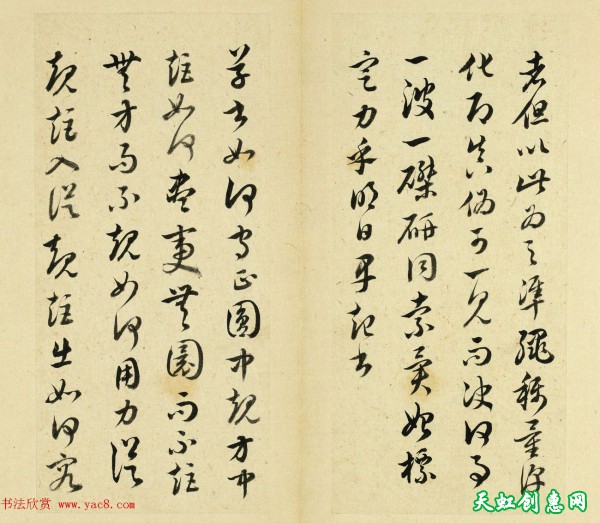 者但以此为之准绳称量浮
化即真伪可一见而决何事
一波一磔研同索异始标
定力乎明日早起书
学书如何定正圆中规方中
矩如何尽东无园而不矩
无方而不规如何用力从
规矩入从规矩出如何究
书法欣赏 www.yac8.com
天虹创惠网